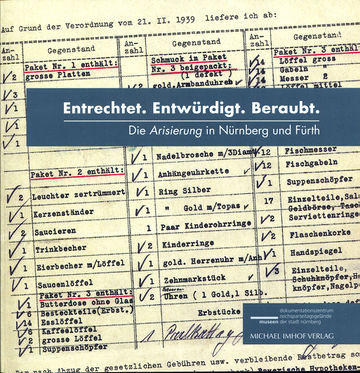 Auf Grund der Verordnung vom 21. II. 1939 liefere ich ab:
An-
zahl
Gegenstand
An-
zahl
Gegenstand
An-
zahl
Gegenstand
Paket Nr. 1 enthält:
2 grosse Platten
3
1
1
1
Schmuck im Paket
Nr. 3 beigepackt:
(1 defekt)
2 gold. Armbanduhren
Paket Nr. 3 enthält
14 Löffel gross
14 Gabeln
Messer
Entrechtet. Entwürdigt. Beraubt.
Die Arisierung in Nürnberg und Fürth
Paket Nr. 2 enthält:
2 Leuchter zertrümmert
1 Kerzenständer
2 Saucieren
1 Trinkbecher
1 Eierbecher m/Löffel
1 Saucenlöffel
Paket Nr. 3 enthält:
1 Butterdose ohne Glas
6 Besteckteile(Erbst.)
14 Esslöffel
6 Kaffeelöffel
2 grosse Löffel
1 Suppenschöpfer
1 Nadelbrosche m/3Diam
1 Anhängeuhrkette
1 Ring Silber
1 " Gold m/Topas
1 Paar Kinderohrringe
2 Kinderringe
1 gold. Herrenuhr m/Anh
1 Zehnmarkstück
2 Uhren (1 Gold,1 Silb.
Erbstücke
12 Fischmesser
12 Fischgabeln
1 Suppenschöpfer
17 Einzelteile,Salz
Geldbörse,Tasch
2 Serviettenringe
2 Flaschenkorke
1 Handspiegel
3 Einzelteile,
Schuhknöpfer,H
knöpfer,Nagelpo
dokumentationszentrum
reichsparteitagsgelände
museen der stadt nürnberg
MICHAEL IMHOF VERLAG
Der nach Abzug der gesetzlichen Gebühren usw. verbleibende Restbetrag so
Bayerische Hypotheken